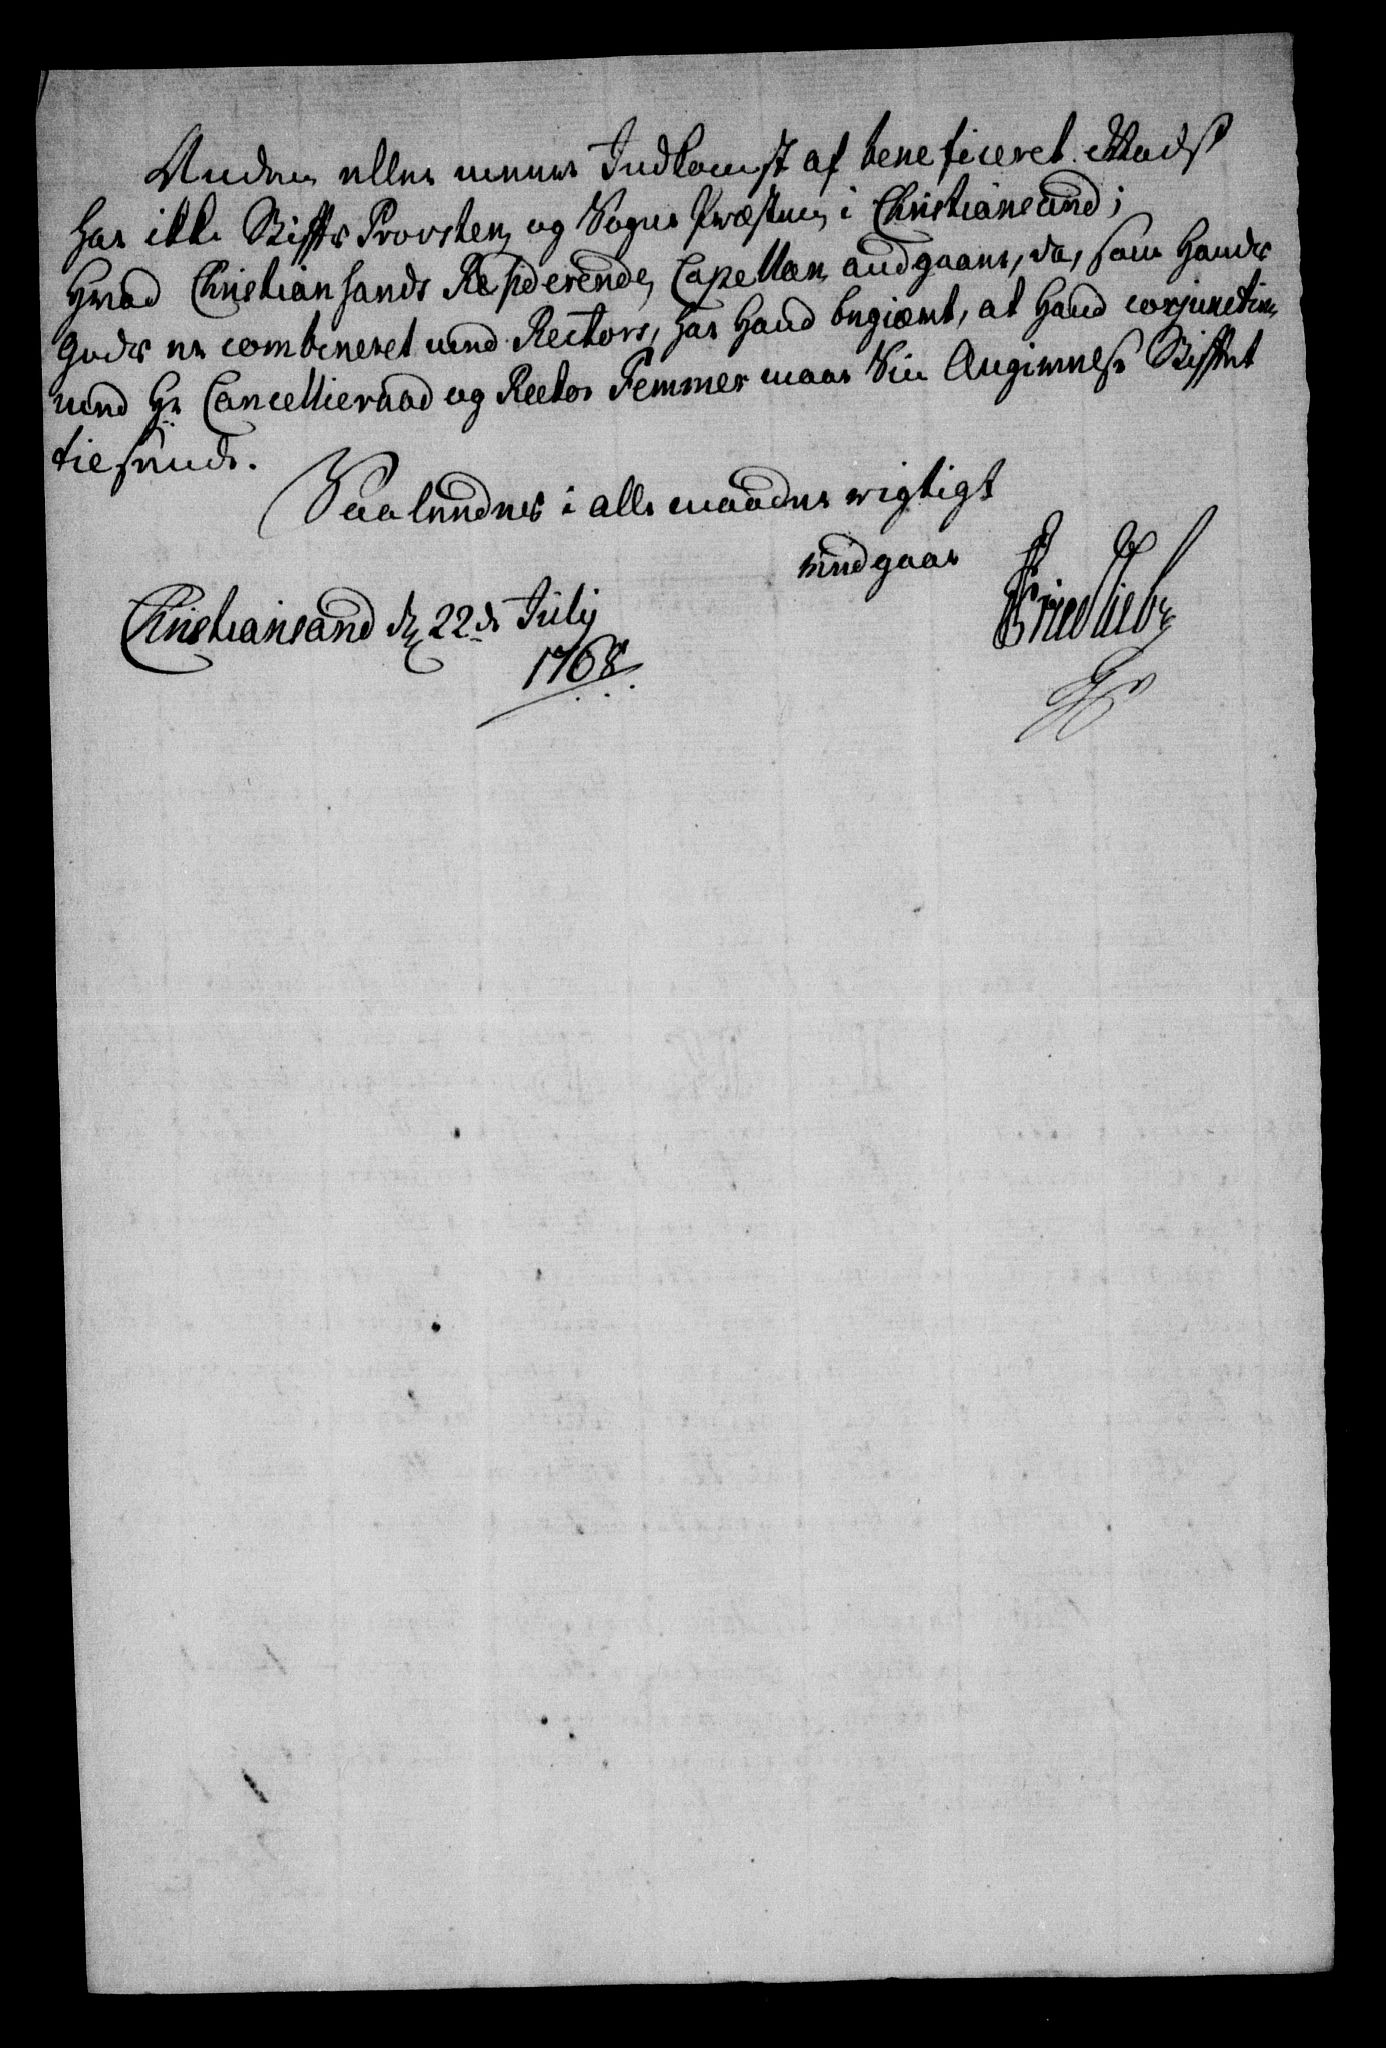 Anden eller meere Indkomst af beneficeret Gods
har ikke Stiffts Provsten og Sogne Præsten i Christiansand;
Hvad Christiansands Residerende Capellan andgaaer, da, som Hands
Gods er combineret med Rectors, har Hand begiært, at Hand conjunctim
med Hr Cancellieraad og Rector Femmer maae Sin Angivelse Stifftet
tilsende.
Saaledes i alle maader rigtigt
vedgaar
Christiansand d. 22de Julij
1768
Friedlieb